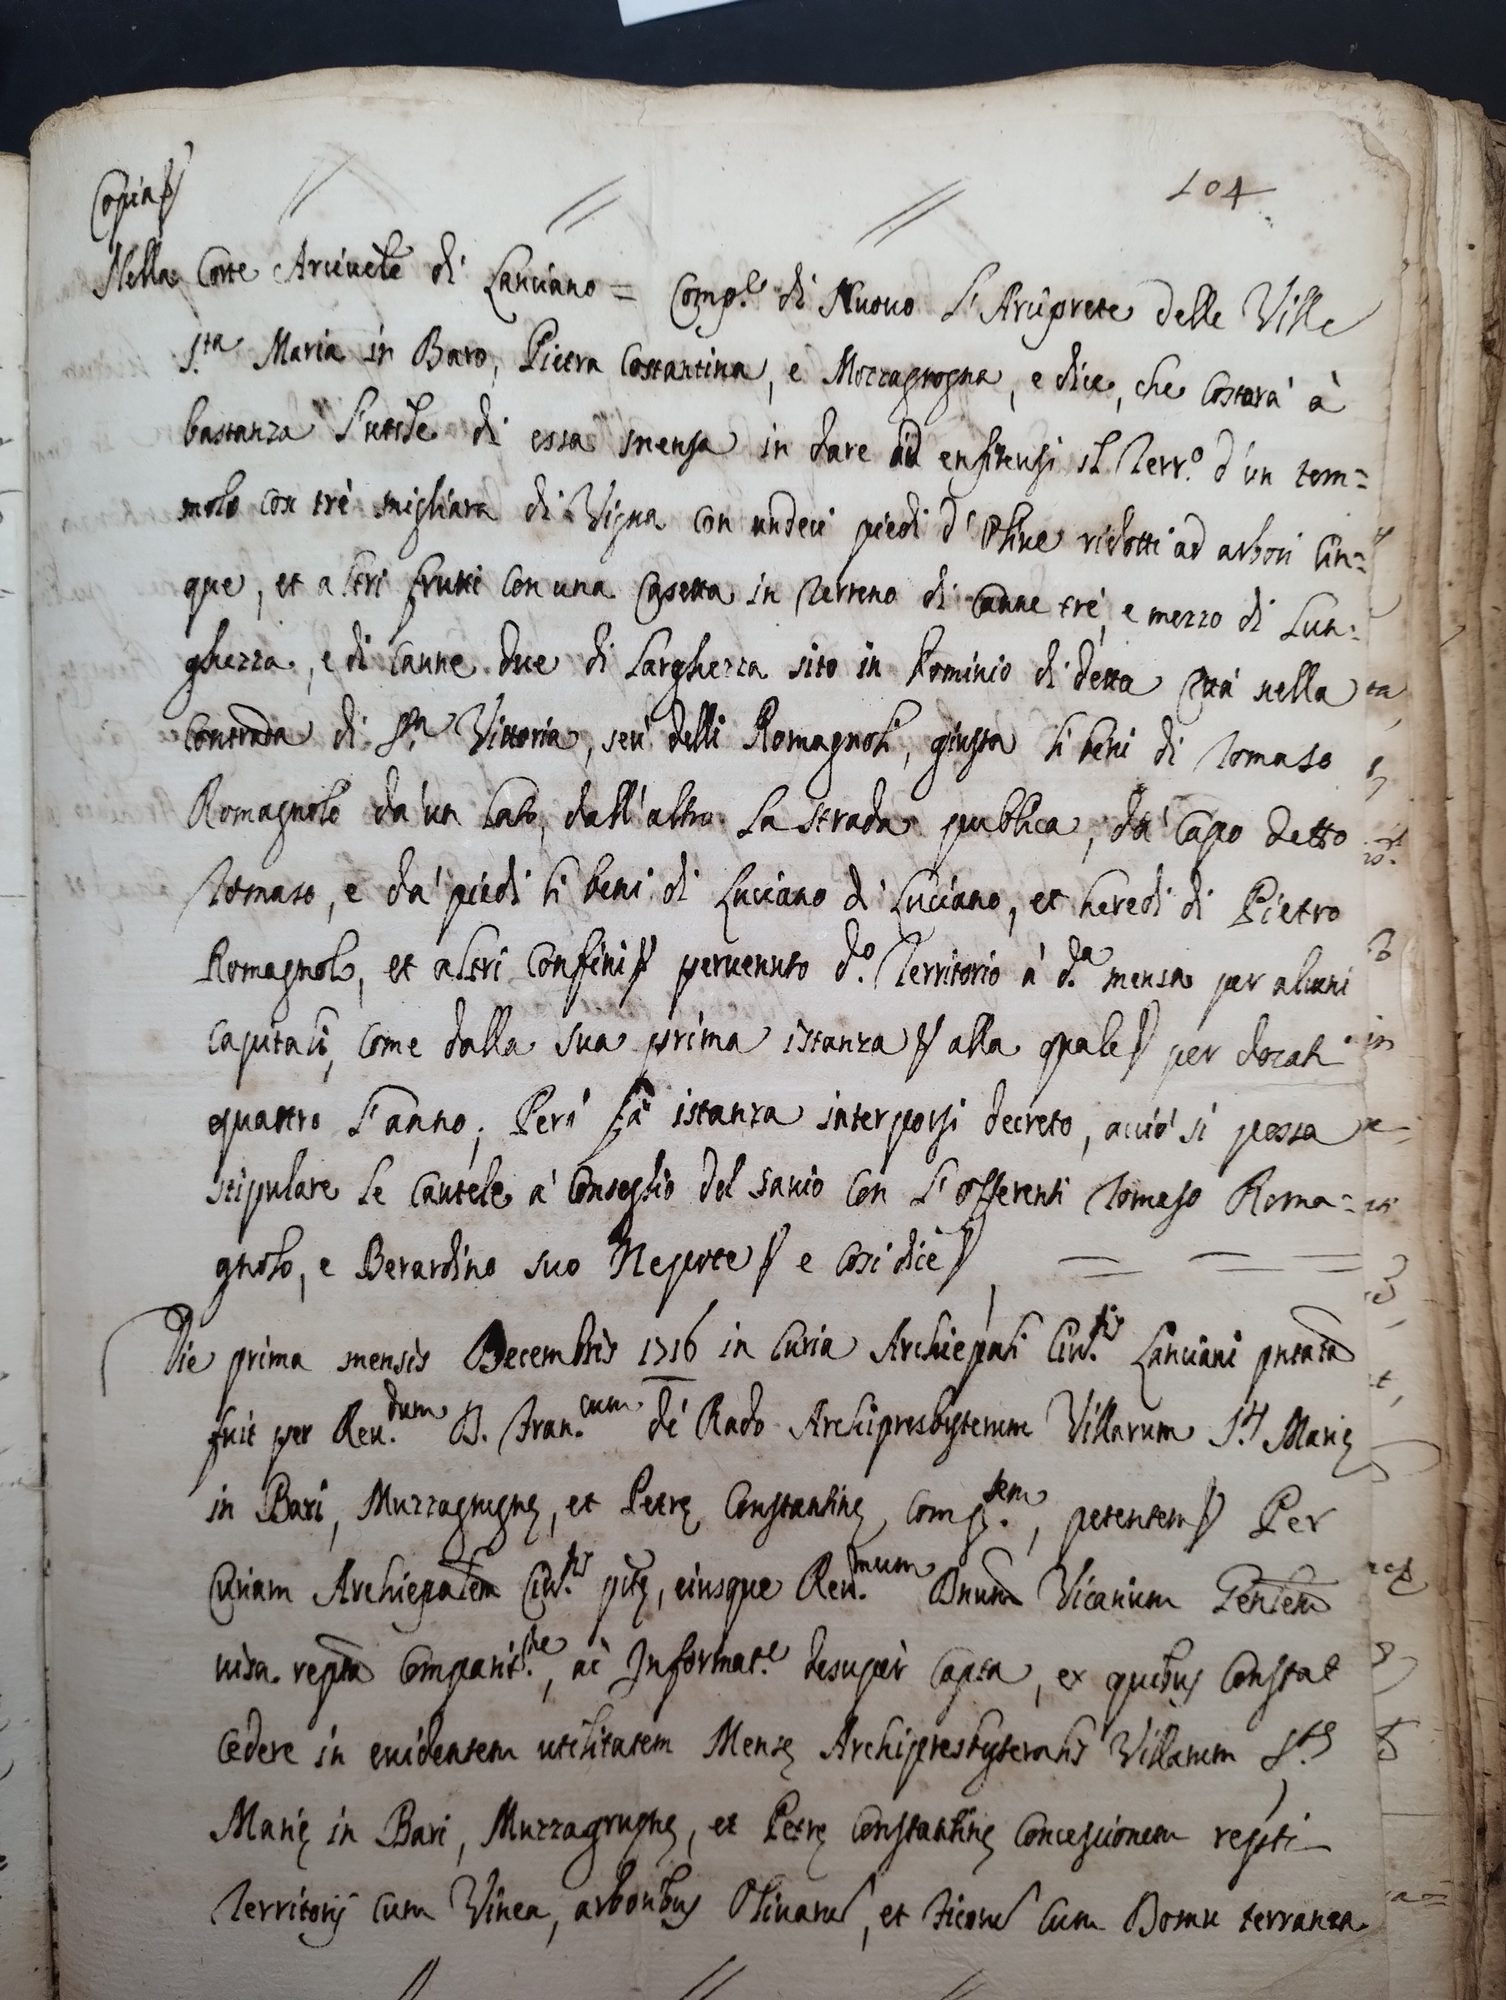 104
Copia
Nella Corte Arcivele di Lanciano = Comp.e di Nuovo l'Arciprete delle Ville
S.ta Maria in Baro, Pietra Costantina, e Mozzagrogna, e dice, che Costarà à
bastanza l'utile di essa mensa in dare ad enfiteusi il Terr.o d'un tom=
molo con trè migliara di Vigna con undeci piedi d'Olive ridotti ad arbori Cin=
que, et altri frutti con una Casetta in terreno di Canne trè, e mezzo di Lun=
ghezza, e di Canne due di larghezza sito in Dominio di detta Città nella
Contrada di S.a Vittoria, seù delli Romagnoli, giusta li beni di Tomaso
Romagnolo dà un lato, dall'altro la strada publica, dà Capo detto
Tomaso, e dà piedi li beni di Luciano di Luciano, et heredi di Pietro
Romagnolo, et altri Confini pervenuto d.o Territorio à d.a mensa per alcuni
Capitali, come dalla sua prima istanza alla quale per docati
quattro l'anno; Però fà istanza interporsi decreto, acciò si possa
stipulare le Cautele à Conseglio del Savio Con l'offerenti Tomaso Roma=
gnolo, e Berardino suo Nepote e Così dice
Die prima mensis Decembris 1716 in Curia Archiepali Civ.tis Lanciani pntata
fuit per Rev.dum D. Fran.cum dè Rado Archipresbyterum Villarum S.æ Marię
in Bari, Muzzagrugnę, et Petrę Constantinę Comp.tem, petentem Per
Curiam Archiepalem Civ.tis pttę, eiusque Rev.mum Dnum Vicarium Gnlem
visa repta Comparit.ne, ac Informat.e desuper Capta, ex quibus Constat
Cedere in evidentem utilitatem Mensę Archipresbyteralis Villarum S.tę
Marię in Bari, Muzzagrugnę, et Petrę Constantinę Concessionem repti
Territorij Cum Vinea, arboribus Olivarum, et ficorum Cum Domu terranea